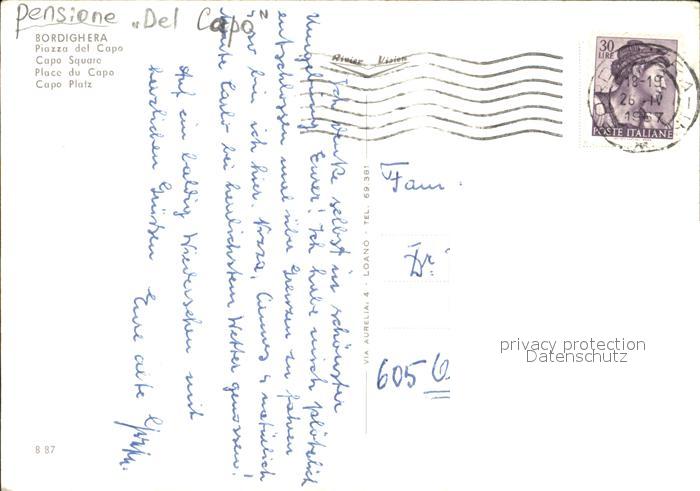 Pensione "Del Capo"
BORDIGHERA
Piazza del Capo
Capo Square
Place du Capo
Capo Platz
Riviera Vision
30
LIRE
18-19
26 IV
1967
POSTE ITALIANE
Ich denke selbst in schönster
Umgebung Eurer! Ich habe mich plötzlich
entschlossen mal über Grenzen zu fahren
bin ich hier. Nizza, Cannes & natürlich
Monte Carlo bei herrlichstem Wetter genossen!
Auf ein baldig Wiedersehen mit
herzlichen Grüßen Eure alte
VIA AURELIA, 4 - LOANO - TEL. 69.381
Fam.
Dr.
605
privacy protection
Datenschutz
B 87